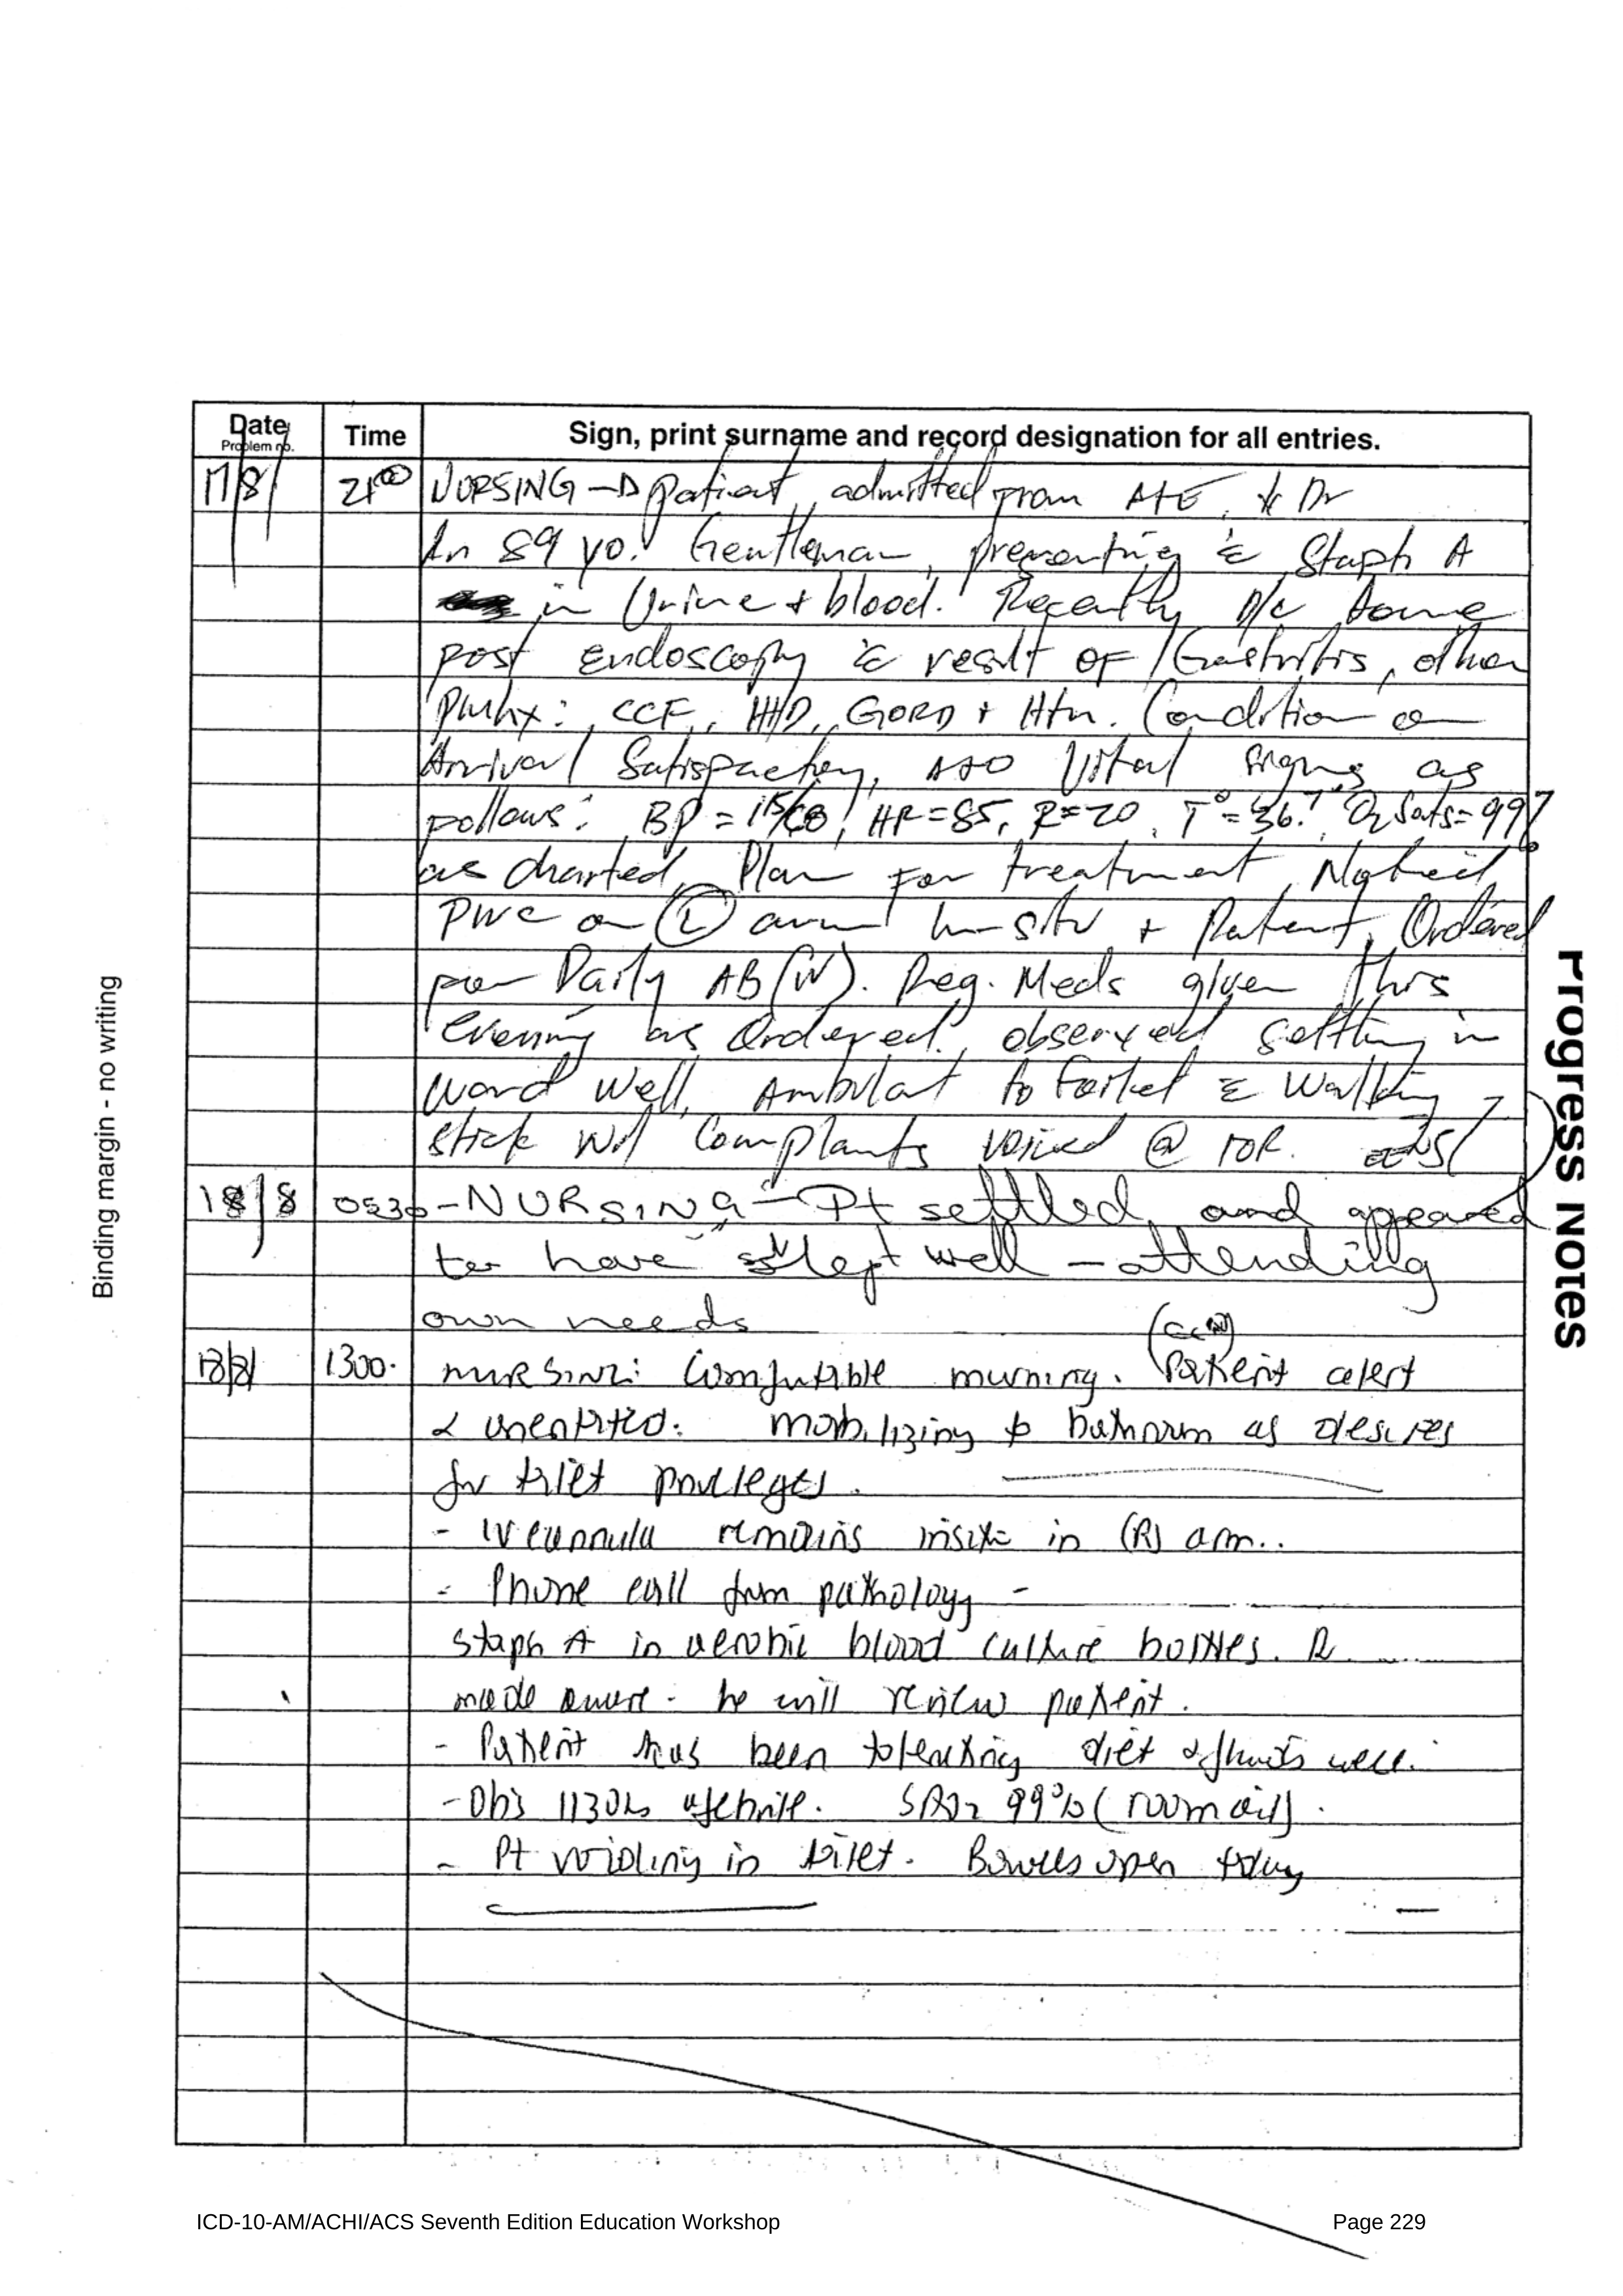 Date
Problem no.
Time
Sign, print surname and record designation for all entries.
17/8/ 2100 NURSING → patient, admitted from A+E, Dr
An 89 yo. Gentleman, presenting c̄ Staph A
in Urine + blood. Recently D/C home
post Endoscopy c̄ result of Gastritis, other
Pmhx: CCF, IHD, GORD + Htn. Condition on
Arrival Satisfactory, Vital signs as
follows: BP = 115/68, HR = 85, R = 20, T° = 36.7, O2 Sats = 99%
as charted, Plan for treatment, Noticed
on (L) arm In-situ + Patent, Ordered
for Daily AB (IV). Reg. Meds given this
Evening as Ordered, observed settling in
ward well, Ambulat to toilet c̄ walking
stick complants voiced @ TOR.
18/8 0530 - NURSING - Pt settled and appeared
to have slept well - attending
own needs
18/8/ 1300. NURSING: Comfortable morning. Patient alert
& orientated. mobilizing to bathroom as desires
for toilet privileges.
- IV cannula remains insitu in (R) arm..
- Phone call from pathology -
staph A in aerobic blood culture bottles. Dr
made aware - he will review patient.
- Patient has been tolerating diet & fluids well.
- Obs 1130hs afebrile. SAO2 99% (room air).
- Pt voiding in toilet. Bowels open today
Binding margin - no writing
Progress Notes
ICD-10-AM/ACHI/ACS Seventh Edition Education Workshop
Page 229